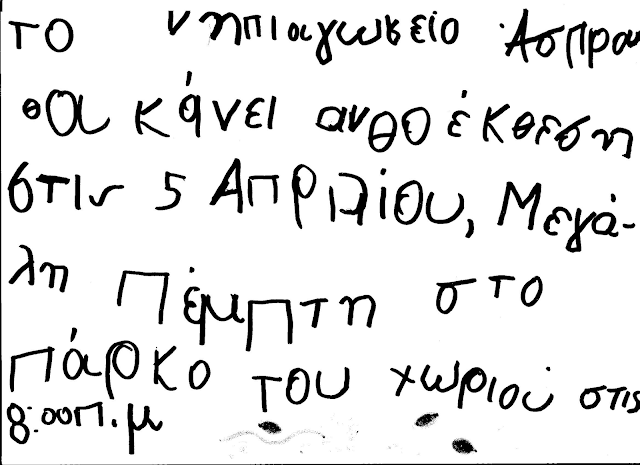 το νηπιαγωγείο Άσπρου
θα κάνει ανθοέκθεση
στις 5 Απριλίου, Μεγά-
λη Πέμπτη στο
Πάρκο του χωριού στις
8:00π.μ